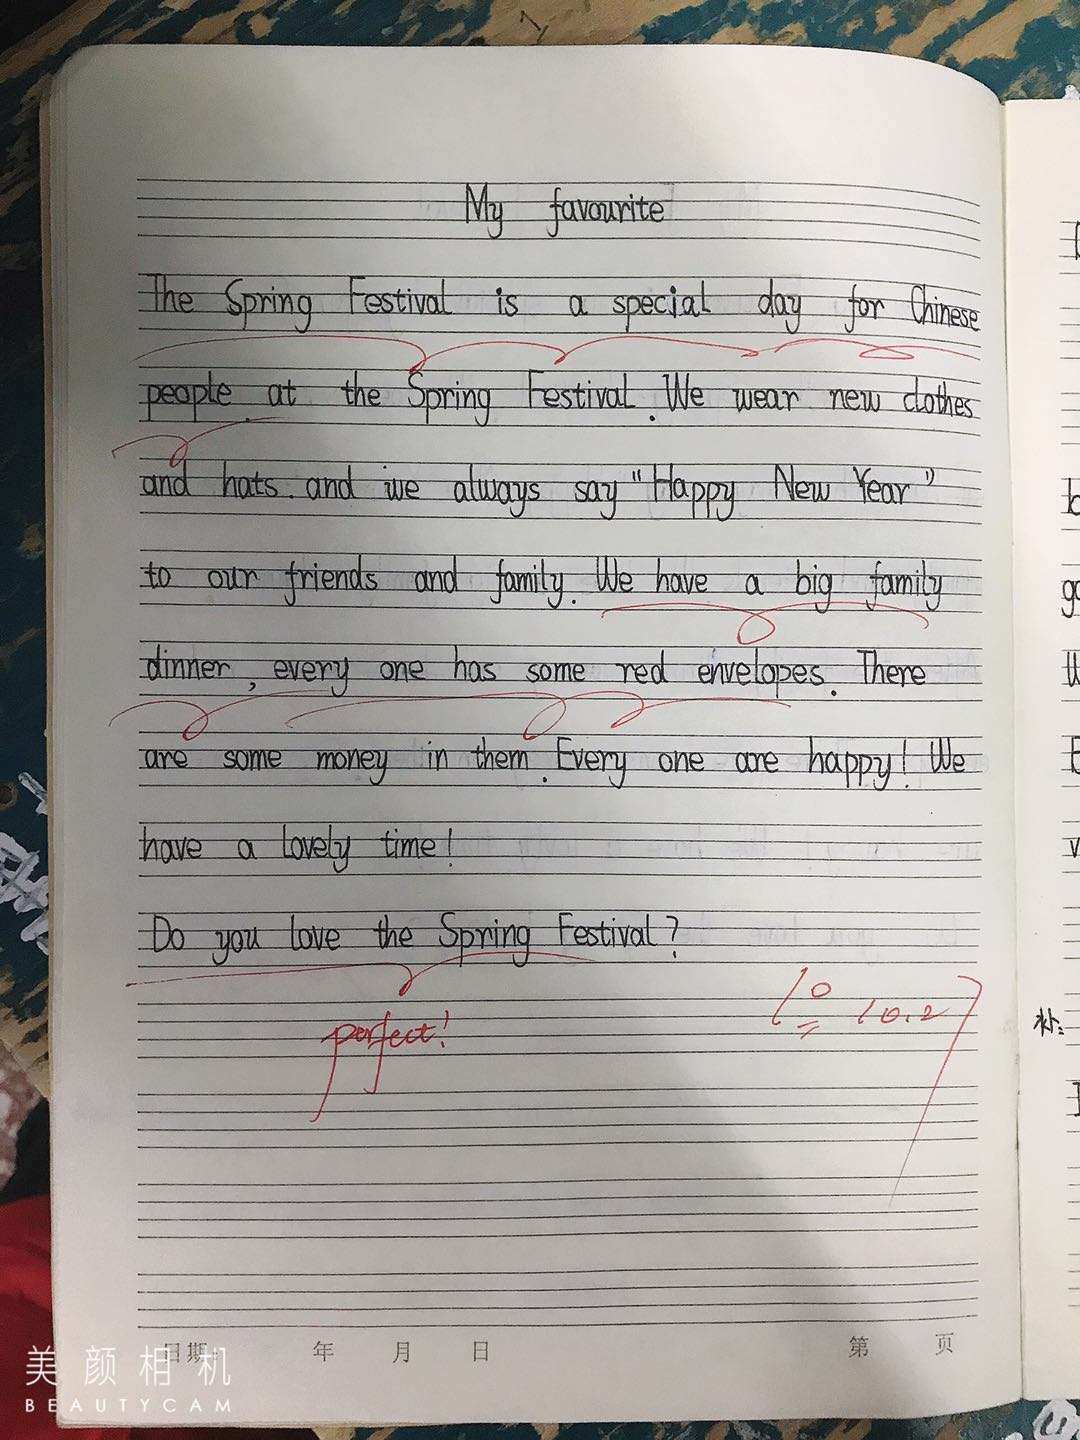 My favourite
The Spring Festival is a special day for Chinese
people at the Spring Festival. We wear new clothes
and hats. and we always say "Happy New Year"
to our friends and family. We have a big family
dinner, every one has some red envelopes. There
are some money in them. Every one are happy! We
have a lovely time!
Do you love the Spring Festival?
perfect!
10
补:
日期: 年 月 日
第 页
美颜相机
BEAUTYCAM